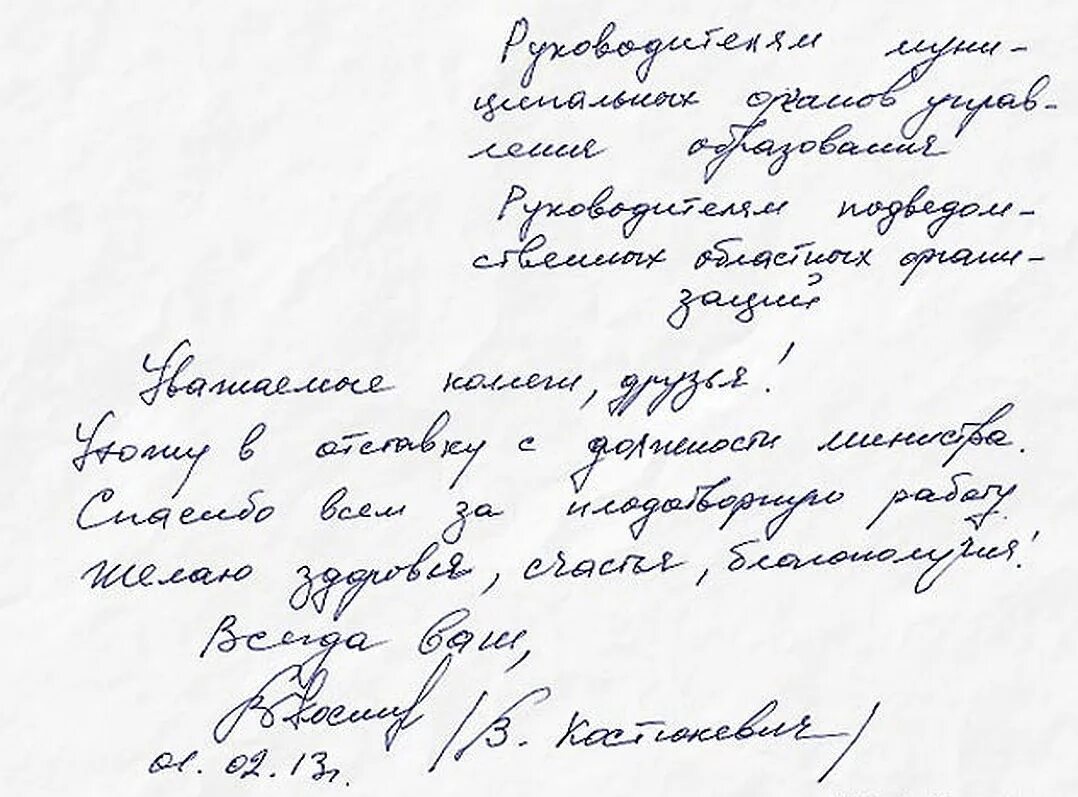 Руководителям муни-
ципальных органов управ-
ления образования
Руководителям подведом-
ственных областных органи-
заций
Уважаемые коллеги, друзья!
Ухожу в отставку с должности министра.
Спасибо всем за плодотворную работу.
Желаю здоровья, счастья, благополучия!
Всегда ваш,
/В. Костюкевич/
01.02.13г.